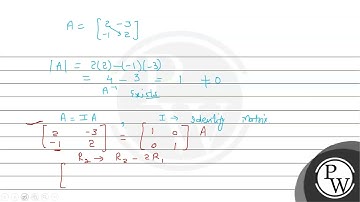 A = [ 2 -3
-1 2 ]
|A| = 2(2) - (-1)(-3)
= 4 - 3 = 1 ≠ 0
A⁻¹ Exists
A = IA , I → Identity matrix
[ 2 -3 ] = [ 1 0 ] A
[ -1 2 ] [ 0 1 ]
R₂ → R₂ - 2R₁
[
PW